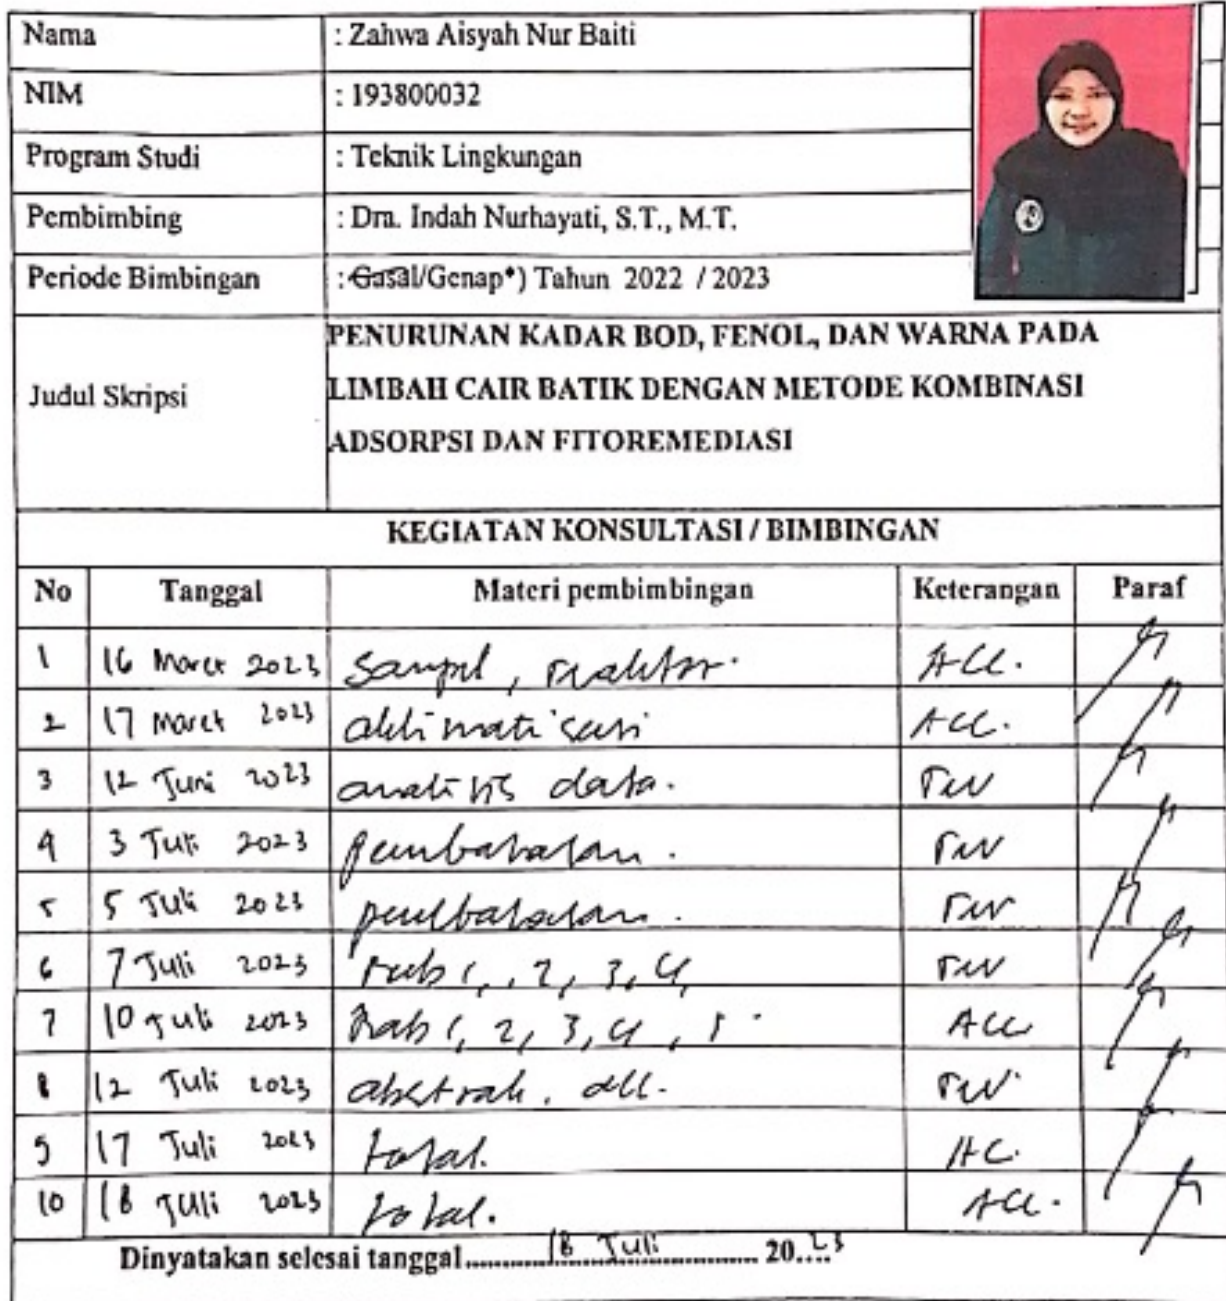 Nama : Zahwa Aisyah Nur Baiti
NIM : 193800032
Program Studi : Teknik Lingkungan
Pembimbing : Dra. Indah Nurhayati, S.T., M.T.
Periode Bimbingan : Gasal/Genap*) Tahun 2022 / 2023
Judul Skripsi
PENURUNAN KADAR BOD, FENOL, DAN WARNA PADA
LIMBAH CAIR BATIK DENGAN METODE KOMBINASI
ADSORPSI DAN FITOREMEDIASI
KEGIATAN KONSULTASI / BIMBINGAN
No Tanggal Materi pembimbingan Keterangan Paraf
1 16 Maret 2023 Sampel, reaktor. ACC.
2 17 Maret 2023 aklimatisasi ACC.
3 12 Juni 2023 analisis data. rev
4 3 Juli 2023 pembahasan. rev
5 5 Juli 2023 pembahasan. rev
6 7 Juli 2023 1, 2, 3, 4, rev
7 10 Juli 2023 Bab 1, 2, 3, 4, 5 ACC
8 12 Juli 2023 abstrak, dll. rev
9 17 Juli 2023 total. AC.
10 18 Juli 2023 total. ACC.
Dinyatakan selesai tanggal 18 Juli 2023